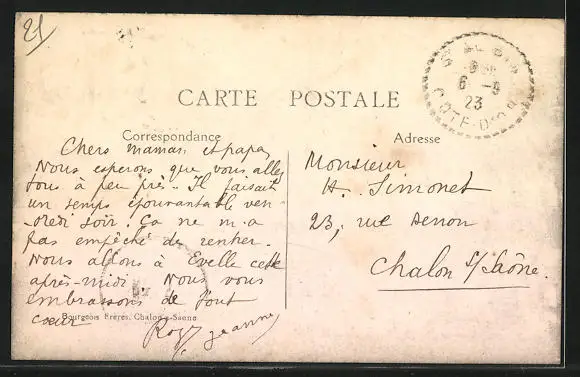 21
CARTE POSTALE
Correspondance
Adresse
6 -4
23
COTE-D'OR
Chers maman et papa,
Nous esperons que vous allez
tous à peu près. Il faisait
un temps épouvantable ven-
dredi soir. Ça ne m'a
pas empêché de rentrer.
Nous allons à Evelle cette
après-midi. Nous vous
embrassons de tout
cœur
Roger Jeanne
Bourgeois Frères, Chalon-s-Saone
Monsieur
H. Simonet
23, rue Denon
Chalon s/Saône.